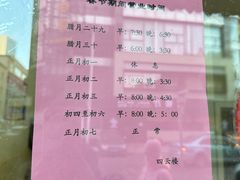 春节期间营业时间
腊月二十九 早：7:30 晚：6:30
腊月三十 早：6:00 晚：3:30
正月初一 休息
正月初二 早：8:00 晚：3:30
正月初三 早：8:00 晚：3:30
初四至初六 早：8:00 晚：5：00
正月初七 正常
四云楼